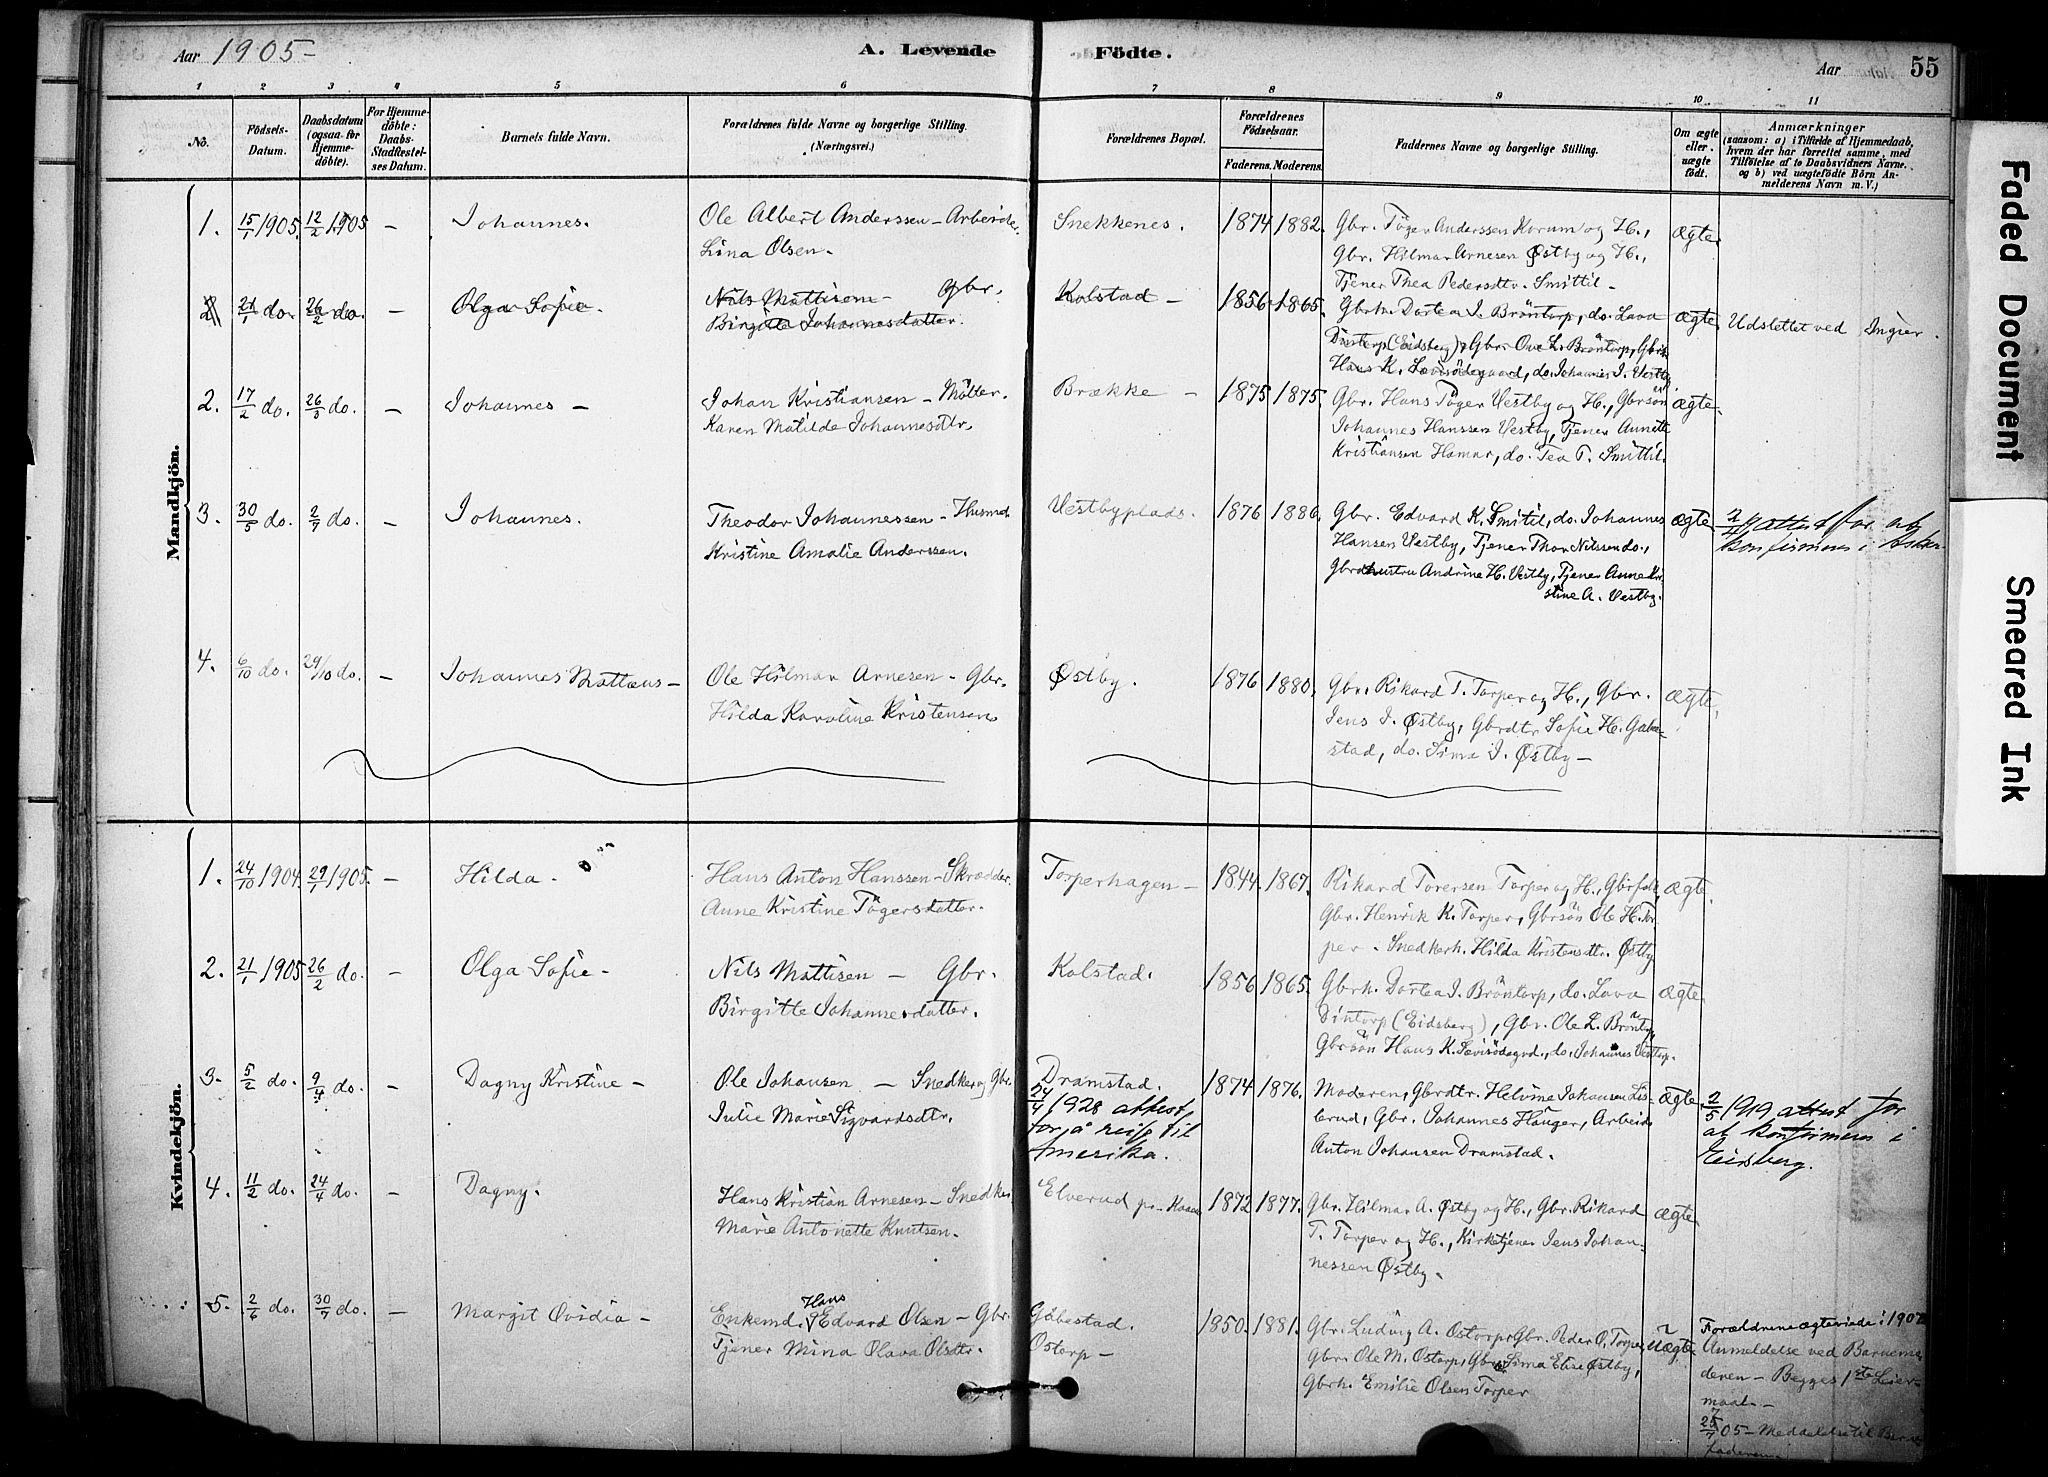 Aar 1905 -
A. Levende Födte.
Aar
55
1 2 3 4 5 6 7 8 9 10 11
No.
Födsels-Datum.
Daabsdatum (ogsaa for Hjemme-döbte).
For Hjemme-döbte: Daabs-Stadfæstel-ses Datum.
Barnets fulde Navn.
Forældrenes fulde Navne og borgerlige Stilling. (Næringsvei.)
Forældrenes Bopæl.
Forældrenes Födselsaar.
Faderens. Moderens.
Faddernes Navne og borgerlige Stilling.
Om ægte eller uægte födt.
Anmærkninger
(saasom: a) i Tilfælde af Hjemmedaab,
hvem der har forrettet samme, med
Tilföielse af to Daabsvidners Navne.
og b) ved uægtefödte Börn An-
melderens Navn m.V.)
Mandkjön.
1. 15/1 1905. 12/2 1905 – Johannes. Ole Albert Anderssen – Arbeider. Snekkenes. 1874 1882. Gbr. Töger Anderssen Korum og H., ægte
Lina Olsen. Gbr. Hilmar Arnesen Østby og H.,
Tjener Thea Pedersdtr. Smittil –
2 21/1 do. 26/2 do – Olga Sofie. Nils Mattisen – Gbr. Kolstad – 1856 1865. Gbrh. Dortea J. Bröntorp, do. Lava ægte Udslettet ved Ingier.
Birgitte Johannesdatter. Dintorp (Eidsberg), Gbr. Ole L. Bröntorp, Gbrsön
Hans K. Lövisödegaard, do. Johannes J. Vestby
2. 17/2 do. 26/3 do. – Johannes – Johan Kristiansen – Mölter. Brække – 1875 1875. Gbr. Hans Töger Vestby og H., Gbrsön ægte
Karen Matilde Johannesdtr. Johannes Hanssen Vestby, Tjener Annette
Kristiansen Hamar, do. Tea T. Smittil.
3. 30/5 do. 2/7 do. – Johannes. Theodor Johannessen – Husmd. Vestbyplads. 1876 1886. Gbr. Edvard K. Smitil, do. Johannes ægte 2/4 attest for at
Kristine Amalie Anderssen. Hansen Vestby, Tjener Thor Nilssen do., konfirmeres i Asker
Gbrdhustru Andrine H. Vestby, Tjener Anne Kri
stine A. Vestby.
4. 6/10 do. 29/10 do. – Johannes Mattæus – Ole Hilmar Arnesen – Gbr. Østby. 1876 1880. Gbr. Rikard T. Torper og H., Gbr. ægte.
Hilda Karoline Kristensen Jens J. Østby, Gbrdtr. Sofie H. Gabe-
stad, do. Sima J. Østby –
Kvindekjön.
1. 24/10 1904. 29/1 1905. – Hilda. Hans Anton Hanssen – Skrædder. Torperhagen – 1844 1867. Rikard Torersen Torper og H., Gbrfolk, ægte.
Anne Kristine Tögersdatter. Gbr. Henrik K. Torper, Gbrsön Ole H. Tor
per – Snedkerh. Hilda Kristensdtr. Østby
2. 21/1 1905 26/2 do. – Olga Sofie – Nils Mattisen – Gbr. Kolstad. 1856 1865. Gbrh. Dortea J. Bröntorp, do. Lava ægte
Birgitte Johannesdatter. Dintorp (Eidsberg), Gbr. Ole L. Bröntorp
Gbrsön Hans K. Lövisödegrd., do. Johannes Vestorp.
3. 5/2 do. 9/4 do. – Dagny Kristine – Ole Johansen – Snedker og Gbr. Dramstad. 1874 1876. Moderen, Gbrdtr. Helvine Johansen Lis- ægte 2/5 1919 attest for
Julie Marie Sigvardsdtr. 24/4 1928 attest, berud, Gbr. Johannes Hauger, Arbeider at konfirmeres i
for å reise til Anton Johansen Dramstad. Eidsberg.
Amerika.
4. 11/2 do. 24/4 do. – Dagny. Hans Kristian Arnesen – Snedker Elverud pr. 1872 1877. Gbr. Hilmar A. Østby og H., Gbr. Rikard ægte
Marie Antonette Knutsen. T. Torper og H., Kirketjener Jens Johan-
nessen Østby.
5. 2/6 do. 30/7 do. – Margit Ovidia – Enkemd. Hans Edvard Olsen – Gbr. Gabestad. 1850. 1881. Gbr. Ludvig A. Ostorp, Gbr. Peder O. Torper, uægte Forældrene ægteviede i 1907
Tjener Mina Olava Olsdtr. Ostorp – Gbr. Ole M. Ostorp, Sima Elise Østby, Anmeldelse ved Barnemo
Gbrh. Emilie Olsen Torper deren – Begges 1ste Leier-
maal. –
25/7 05 – Meddelelse til Barne
faderen
Faded Document
Smeared Ink